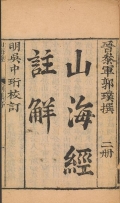 晉參軍郭璞撰 二册
山海經
註解
明吳中珩校訂